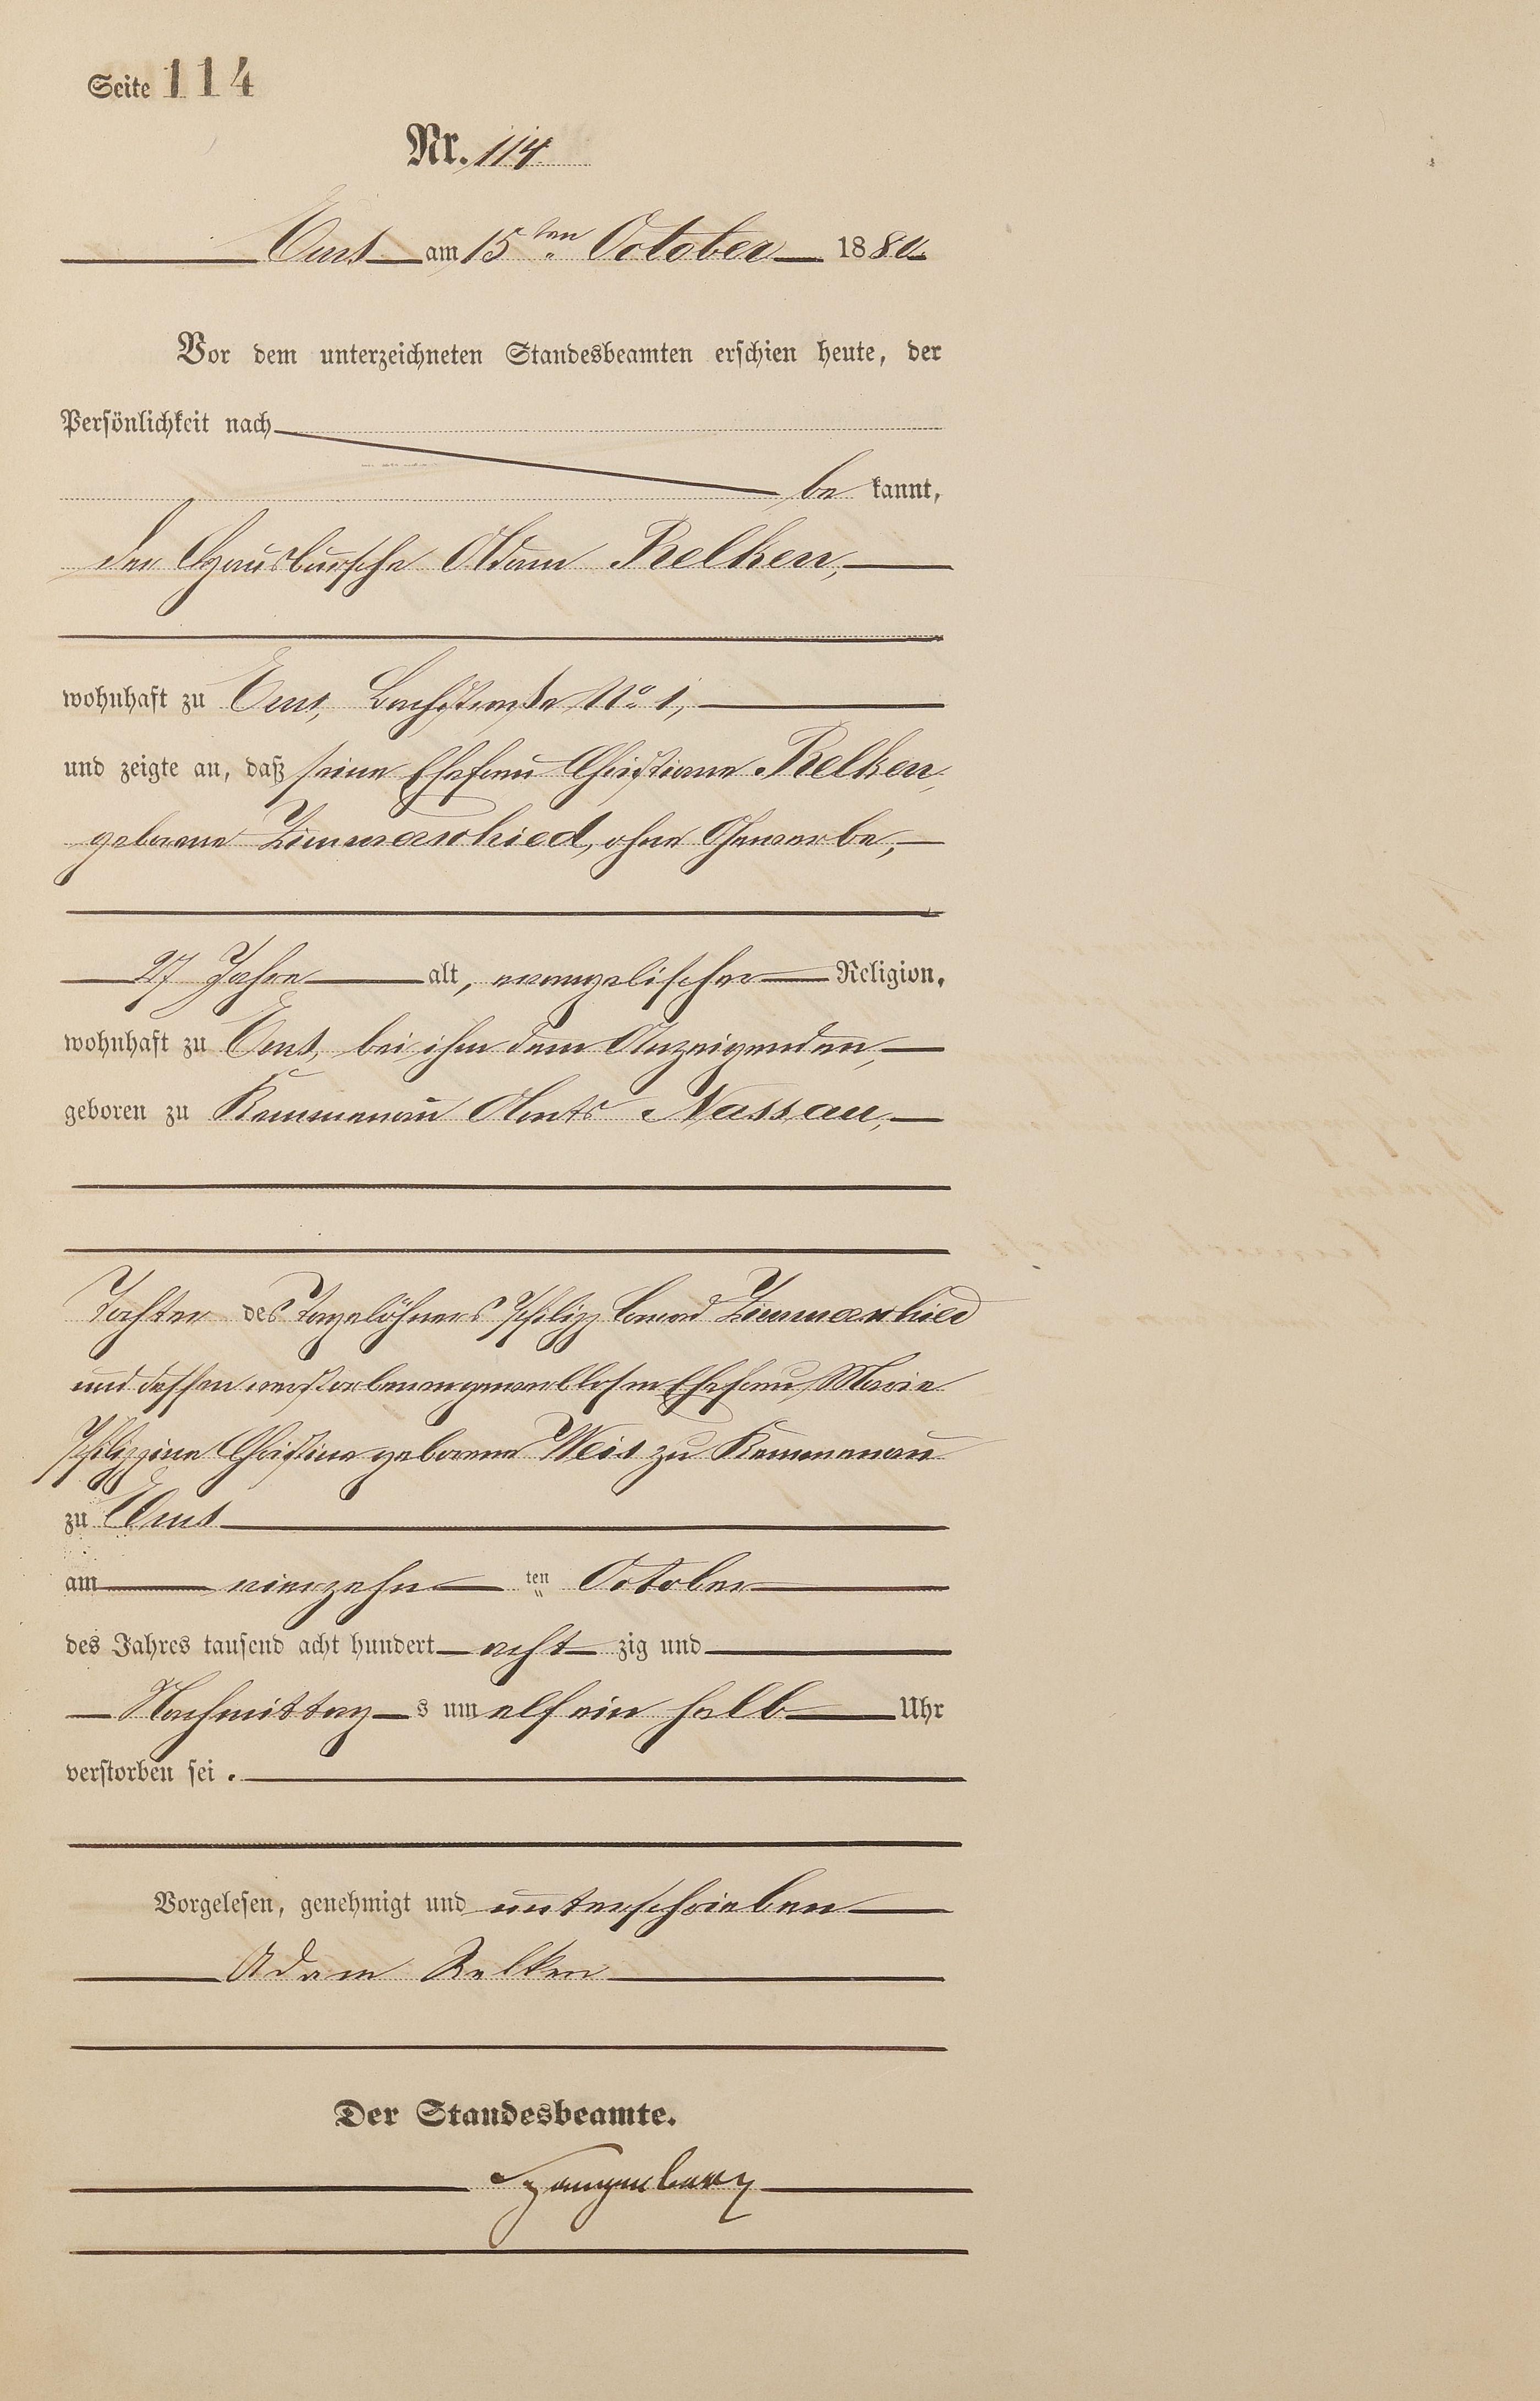 Seite 114
Nr. 114
Ems am 15ten October 1880
Vor dem unterzeichneten Standesbeamten erschien heute, der
Persönlichkeit nach
be kannt,
der Hausbursche Adam Relken,
wohnhaft zu Ems, Bachstraße No 1,
und zeigte an, daß seine Ehefrau Christiane Relken,
geborene Zimmerschied, ohne Gewerbe,
27 Jahre alt, evangelischer Religion,
wohnhaft zu Ems, bei ihm dem Anzeigenden,
geboren zu Kemmenau Amts Nassau,
Tochter des Tagelöhners Philipp Conrad Zimmerschied
und dessen verstorbenen gewerblosen Ehefrau, Marie
Philippine Christine geborene Weis zu Kemmenau
zu Ems
am vierzehn ten October
des Jahres tausend acht hundert acht zig und
Nachmittag s um elf ein halb Uhr
verstorben sei.
Vorgelesen, genehmigt und unterschrieben
Adam Relken
Der Standesbeamte.
Spangenberg